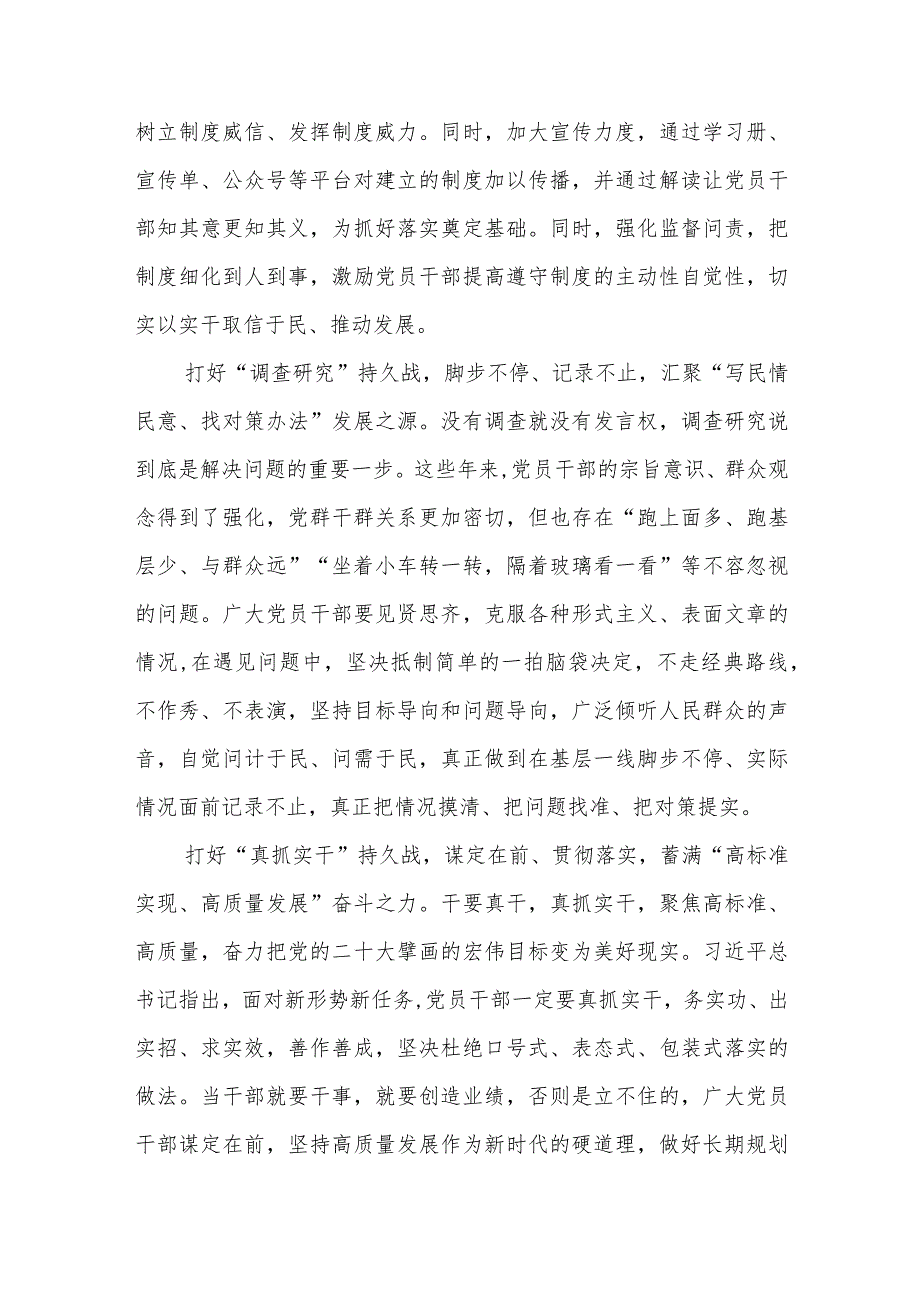 树立制度威信、发挥制度威力。同时，加大宣传力度，通过学习册、
宣传单、公众号等平台对建立的制度加以传播，并通过解读让党员干
部知其意更知其义，为抓好落实奠定基础。同时，强化监督问责，把
制度细化到人到事，激励党员干部提高遵守制度的主动性自觉性，切
实以实干取信于民、推动发展。
打好“调查研究”持久战，脚步不停、记录不止，汇聚“写民情
民意、找对策办法”发展之源。没有调查就没有发言权，调查研究说
到底是解决问题的重要一步。这些年来,党员干部的宗旨意识、群众观
念得到了强化，党群干群关系更加密切，但也存在“跑上面多、跑基
层少、与群众远”“坐着小车转一转，隔着玻璃看一看”等不容忽视
的问题。广大党员干部要见贤思齐，克服各种形式主义、表面文章的
情况,在遇见问题中，坚决抵制简单的一拍脑袋决定，不走经典路线，
不作秀、不表演，坚持目标导向和问题导向，广泛倾听人民群众的声
音，自觉问计于民、问需于民，真正做到在基层一线脚步不停、实际
情况面前记录不止，真正把情况摸清、把问题找准、把对策提实。
打好“真抓实干”持久战，谋定在前、贯彻落实，蓄满“高标准
实现、高质量发展”奋斗之力。干要真干，真抓实干，聚焦高标准、
高质量，奋力把党的二十大擘画的宏伟目标变为美好现实。习近平总
书记指出，面对新形势新任务,党员干部一定要真抓实干，务实功、出
实招、求实效，善作善成，坚决杜绝口号式、表态式、包装式落实的
做法。当干部就要干事，就要创造业绩，否则是立不住的，广大党员
干部谋定在前，坚持高质量发展作为新时代的硬道理，做好长期规划